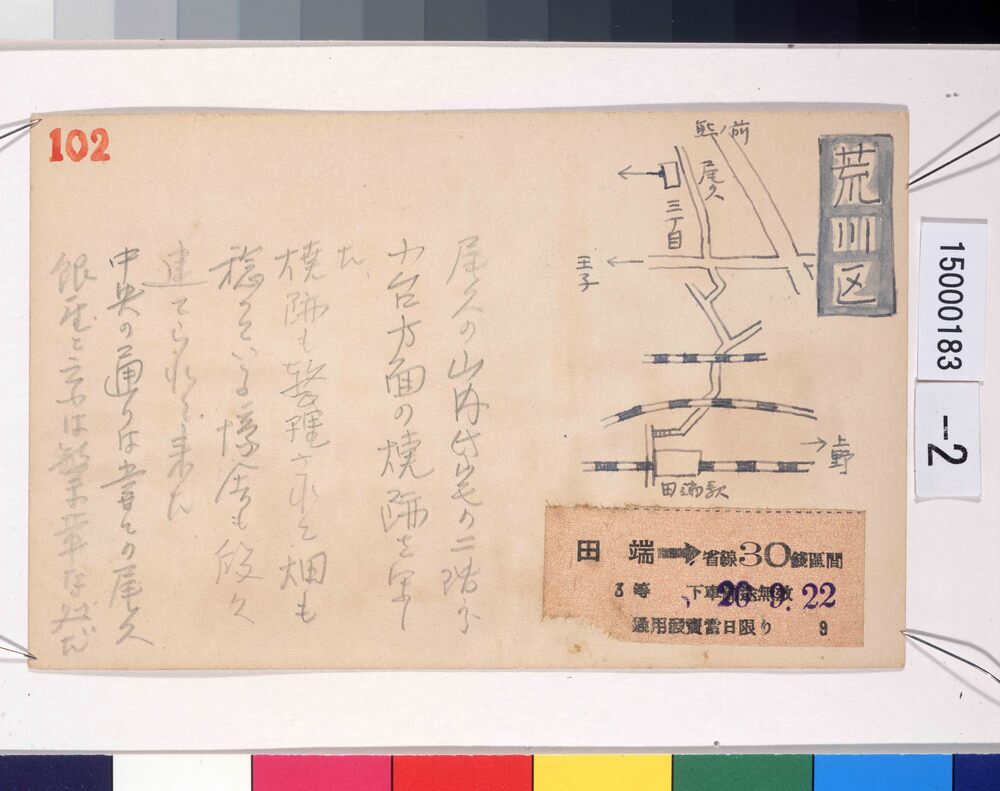 102
荒川区
熊ノ前
尾久
三丁目
王子
上野
田端駅
尾久の山内氏宅の二階から
小台方面の焼跡を写し
た、
焼跡も整理されて畑も
稔っている様舎も段々
建てられて来た
中央の通りは昔の尾久
銀座と京は繁華な
田端→省線30銭区間
3等 下車前途無効
20.9.22
通用發賣當日限り 9
15000183
-2